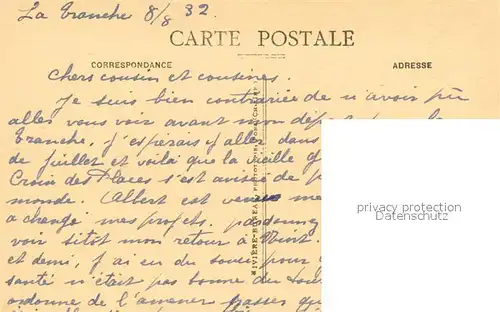 La Tranche 8/8 32.
CARTE POSTALE
CORRESPONDANCE
ADRESSE
Chers cousin et cousines.
Je suis bien contrariée de n'avoir pu
aller vous voir avant mon dép
Tranche, j'espérais y aller dans
de juillet et voilà que la vieille
Croix des Places s'est avisée de
monde. Albert est venu me
a changé mes projets. pardonnez
voir sitôt mon retour à Niort.
et demi, j'ai eu du souci pour
santé n'était pas bonne du tout
ordonné de l'amener passer
privacy protection
Datenschutz